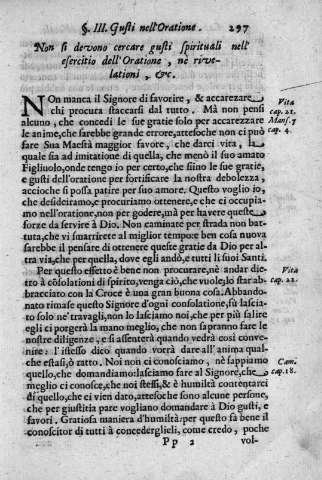 §. III. Gusti nell'Oratione. 297
Non si devono cercare gusti spirituali nell'
esercitio dell'Oratione, nè rive-
lationi, &c.
NOn manca il Signore di favorire, & accarezare
chi procura staccarsi dal tutto. Mà non pensi
alcuno, che concedi le sue gratie solo per accarezzare
le anime, che sarebbe grande errore, attesoche non ci può
fare Sua Maestà maggior favore, che darci vita, la
quale sia ad imitatione di quella, che menò il suo amato
Figliuolo, onde tengo io per certo, che siino le sue gratie,
e gusti dell'oratione per fortificare la nostra debolezza,
accioche si possa patire per suo amore. Questo voglio io,
che desideriamo, e procuriamo ottenere, e che ci occupia-
mo nell'oratione, non per godere, mà per havere queste
forze da servire à Dio. Non caminate per strada non bat-
tuta, che vi smarrirete al miglior tempo: e ben cosa nuova
sarebbe il pensare di ottenere queste gratie da Dio per al-
tra via, che per quella, dove egli andò, e tutti li suoi Santi.
Per questo effetto è bene non procurare, nè andar die-
tro à cõsolationi di spirito, venga ciò, che vuole; lo star ab-
bracciato con la Croce è una gran buona cosa. Abbando-
nato rimase questo Signore d'ogni consolatione, fù lascia-
to solo ne' travagli, non lo lasciamo noi, che per più salire
egli ci porgerà la mano meglio, che non sapranno fare le
nostre diligenze, e si assenterà quando vedrà così conve-
nire: l'istesso dico quando vorrà dare all'anima qual-
che estasi, ò ratto. Noi non ci conosciamo, nè sappiamo
quello, che domandiamo: lasciamo fare al Signore, che
meglio ci conosce, che noi stessi, & è humiltà contentarci
di quello, che ci vien dato, attesoche sono alcune persone,
che per giustitia pare vogliano domandare à Dio gusti, e
favori. Gratiosa maniera d'humiltà: per questo fà bene il
conoscitor di tutti à concederglieli, come credo, poche
Pp 2 vol-
Vita
cap. 21.
Mans. 7
cap. 4.
Vita
cap. 22.
Cam.
cap. 18.